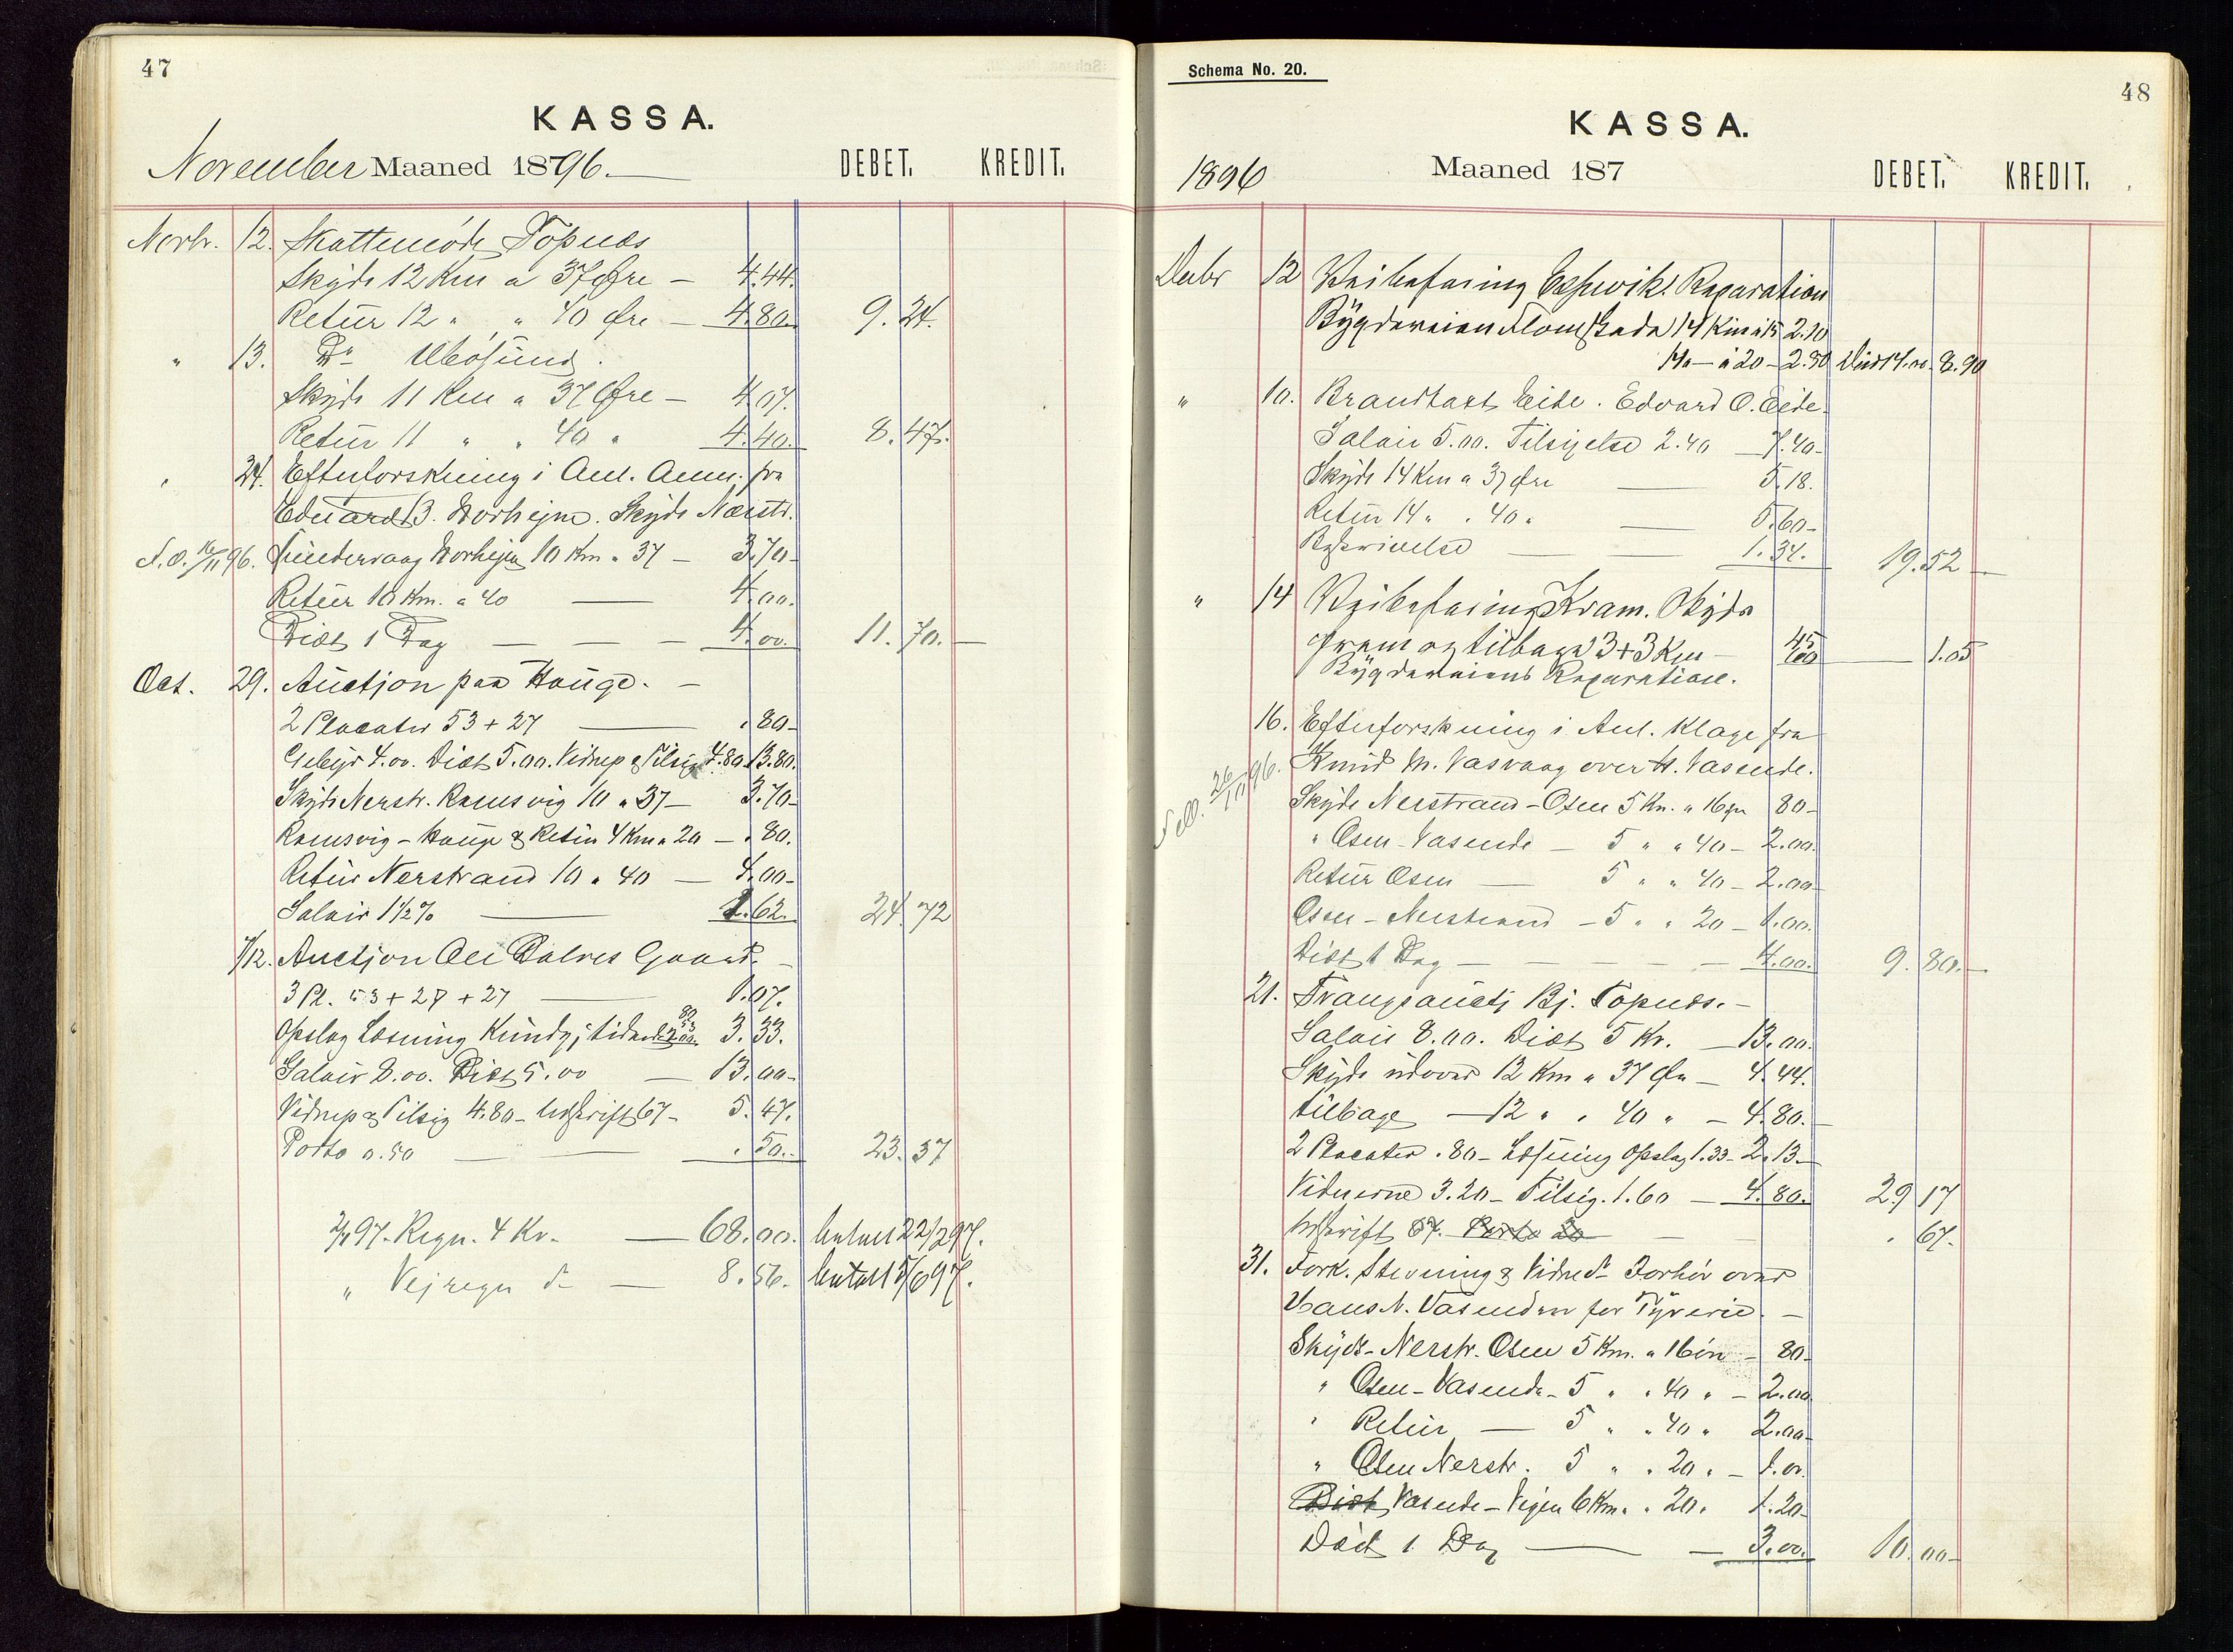 47
KASSA.
November Maaned 1896.
DEBET. KREDIT.
Novbr. 12. Skattemøde Topnæs
Skyds 12 Km a 37 Øre - 4.44.
Retur 12 " " 40 Øre - 4.80. 9.24.
" 13. Do
Skyds 11 Km a 37 Øre - 4.07.
Retur 11 " " 40 " 4.40. 8.47.
" 24. Efterforskning i Anl. Anm. fra
Eduard B. Worhejm. Skyds Nærstr.
16/11 96. Worhejm 10 Km a 37 - 3.70
Retur 10 Km. a 40 — 4.00.
Diæt 1 Dag — — — 4.00. 11.70.
Oct. 29. Auctjon paa Hauge. -
2 Placater 53 + 27 — . 80
Gebyr 4.00. Diæt 5.00. Vidnep & Tilsig 4.80. 13.80.
Skyds Nerstr. Ramsvig 10 a 37 - 3.70
Ramsvig - Hauge & Retur 4 Km a 20 - . 80.
Retur Nerstrand 10 a 40 — 4.00
Salair 1½% — 1.62. 24.72
Auctjon Ole Dalves Gaard. -
3 Pl. 53 + 27 + 27 — 1.07.
Opslag Læsning Kundg. i tidende 3.33.
Salair 8.00. Diæt 5.00 — 13.00
Vidnep & Tilsig 4.80 - Udskrift 67 - 5.47.
Porto 0.50 — — . 50. 23.37
97. Regn. 4 Kv. — 68.00. betalt 22/2 97.
" Vejregn do — 8.56. betalt 5/6 97.
Schema No. 20.
48
KASSA.
1896 Maaned 187
DEBET. KREDIT.
Decbr 12 Veibefaring Reparation
Bygdeveien 14 Km a 15 2.10
14 — a 20 - 2.80 Diæt 4.00 8.90
" 10. Brandtaxt Eide. Edvard O. Eide.
Salair 5.00. Tilsigelse 2.40 — 7.40
Skyds 14 Km a 37 Øre — 5.18.
Retur 14 " " 40 " — 5.60
Beskrivelse — — 1.34. 19.52
" 14 Veibefaring Kram. Skyds
frem og tilbage 3+3 Km - 45 60 — 1.05
Bygdeveiens Reparation.
16. Efterforskning i Anl. Klage fra
Knud M. Vasvaag over H. Vasende.
Skyds Nerstrand - Osen 5 Km. a 16 øre 80
" Osen - Vasende - 5 " " 40 - 2.00.
Retur Osen — 5 " " 40 - 2.00
Osen - Nerstrand - 5 " " 20 - 1.00.
Diæt 1 Dag — — — 4.00. 9.80.
21. Tvangsauctj Bj. Topnæs. -
Salair 8.00. Diæt 5 Kr. — 13.00.
Skyds udover 12 Km a 37 Øre - 4.44.
tilbage — 12 " " 40 " - 4.80.
2 Placater . 80 - Læsning Opslag 1.33 - 2.13
Vidnerne 3.20 - Tilsig. 1.60 — 4.80. 29 17
Udskrift 67. Porto 20 — . 67.
31. Fork. Stevning & Vidne do Forhør over
Hans N. Vasenden for Tyverie. -
Skyds - Nerstr. Osen 5 Km. a 16 øre - 80
" Osen - Vasende - 5 " " 40 " - 2.00
" Retur — 5 " " 40 " 2.00
" Osen Nerstr. 5 " " 20 " - 1.00.
Diæt Vasende - Vejen 6 Km. " 20 " 1.20
Diæt 1 Dag — — 3.00. 10.00